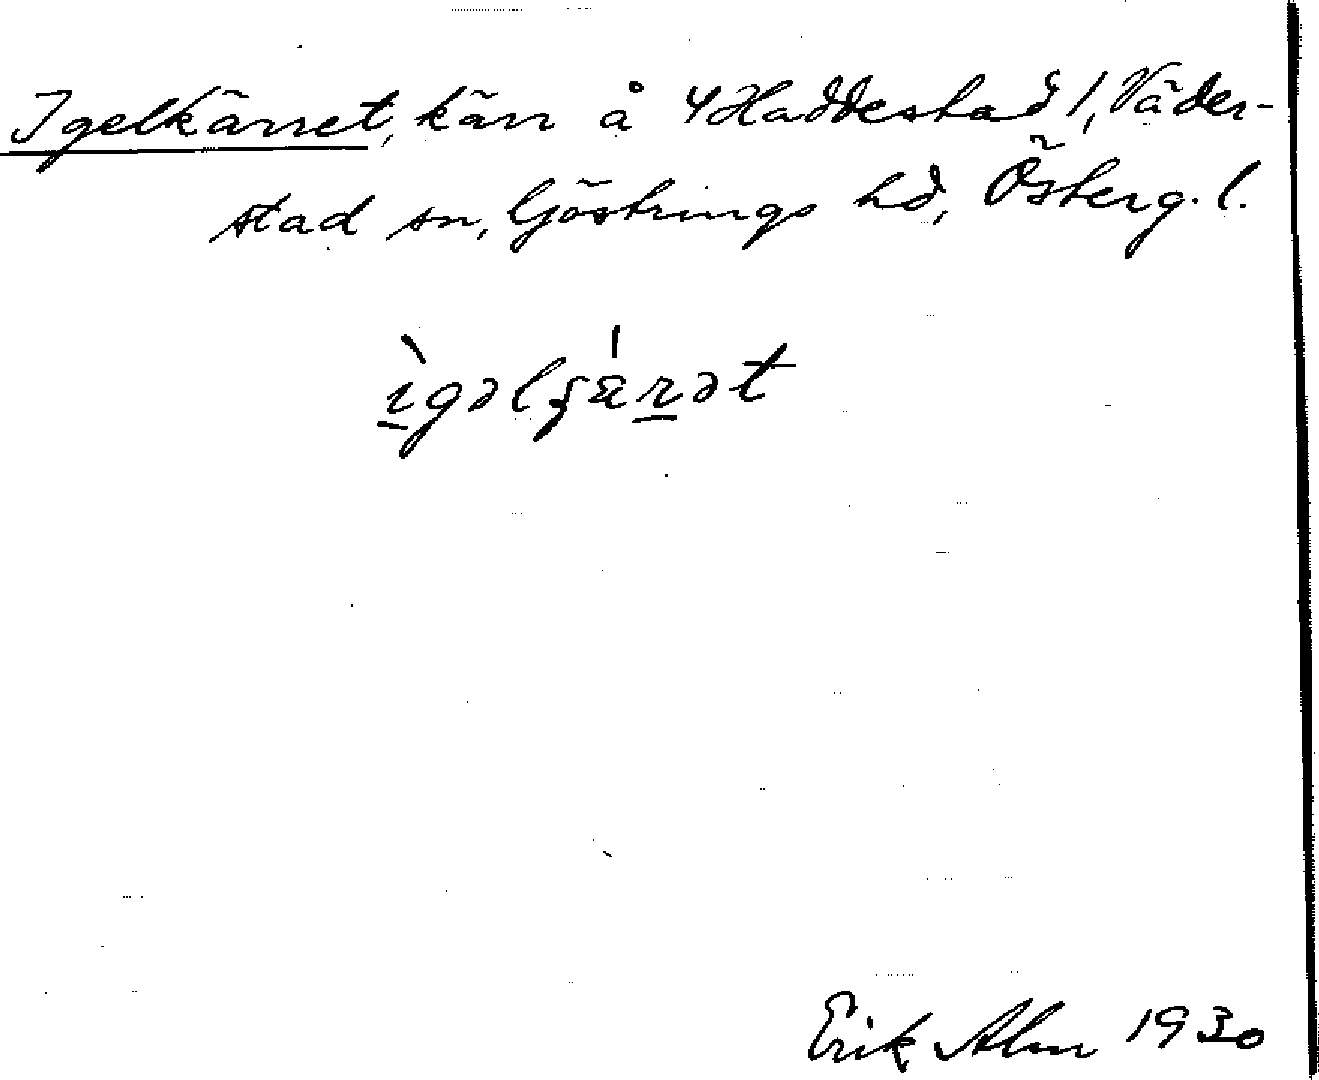 Igelkärret, kärr å Haddestad 1, Väder-
stad sn, Göstrings hd, Österg. l.
ìgəlɕä́rət
Erik Alm 1930